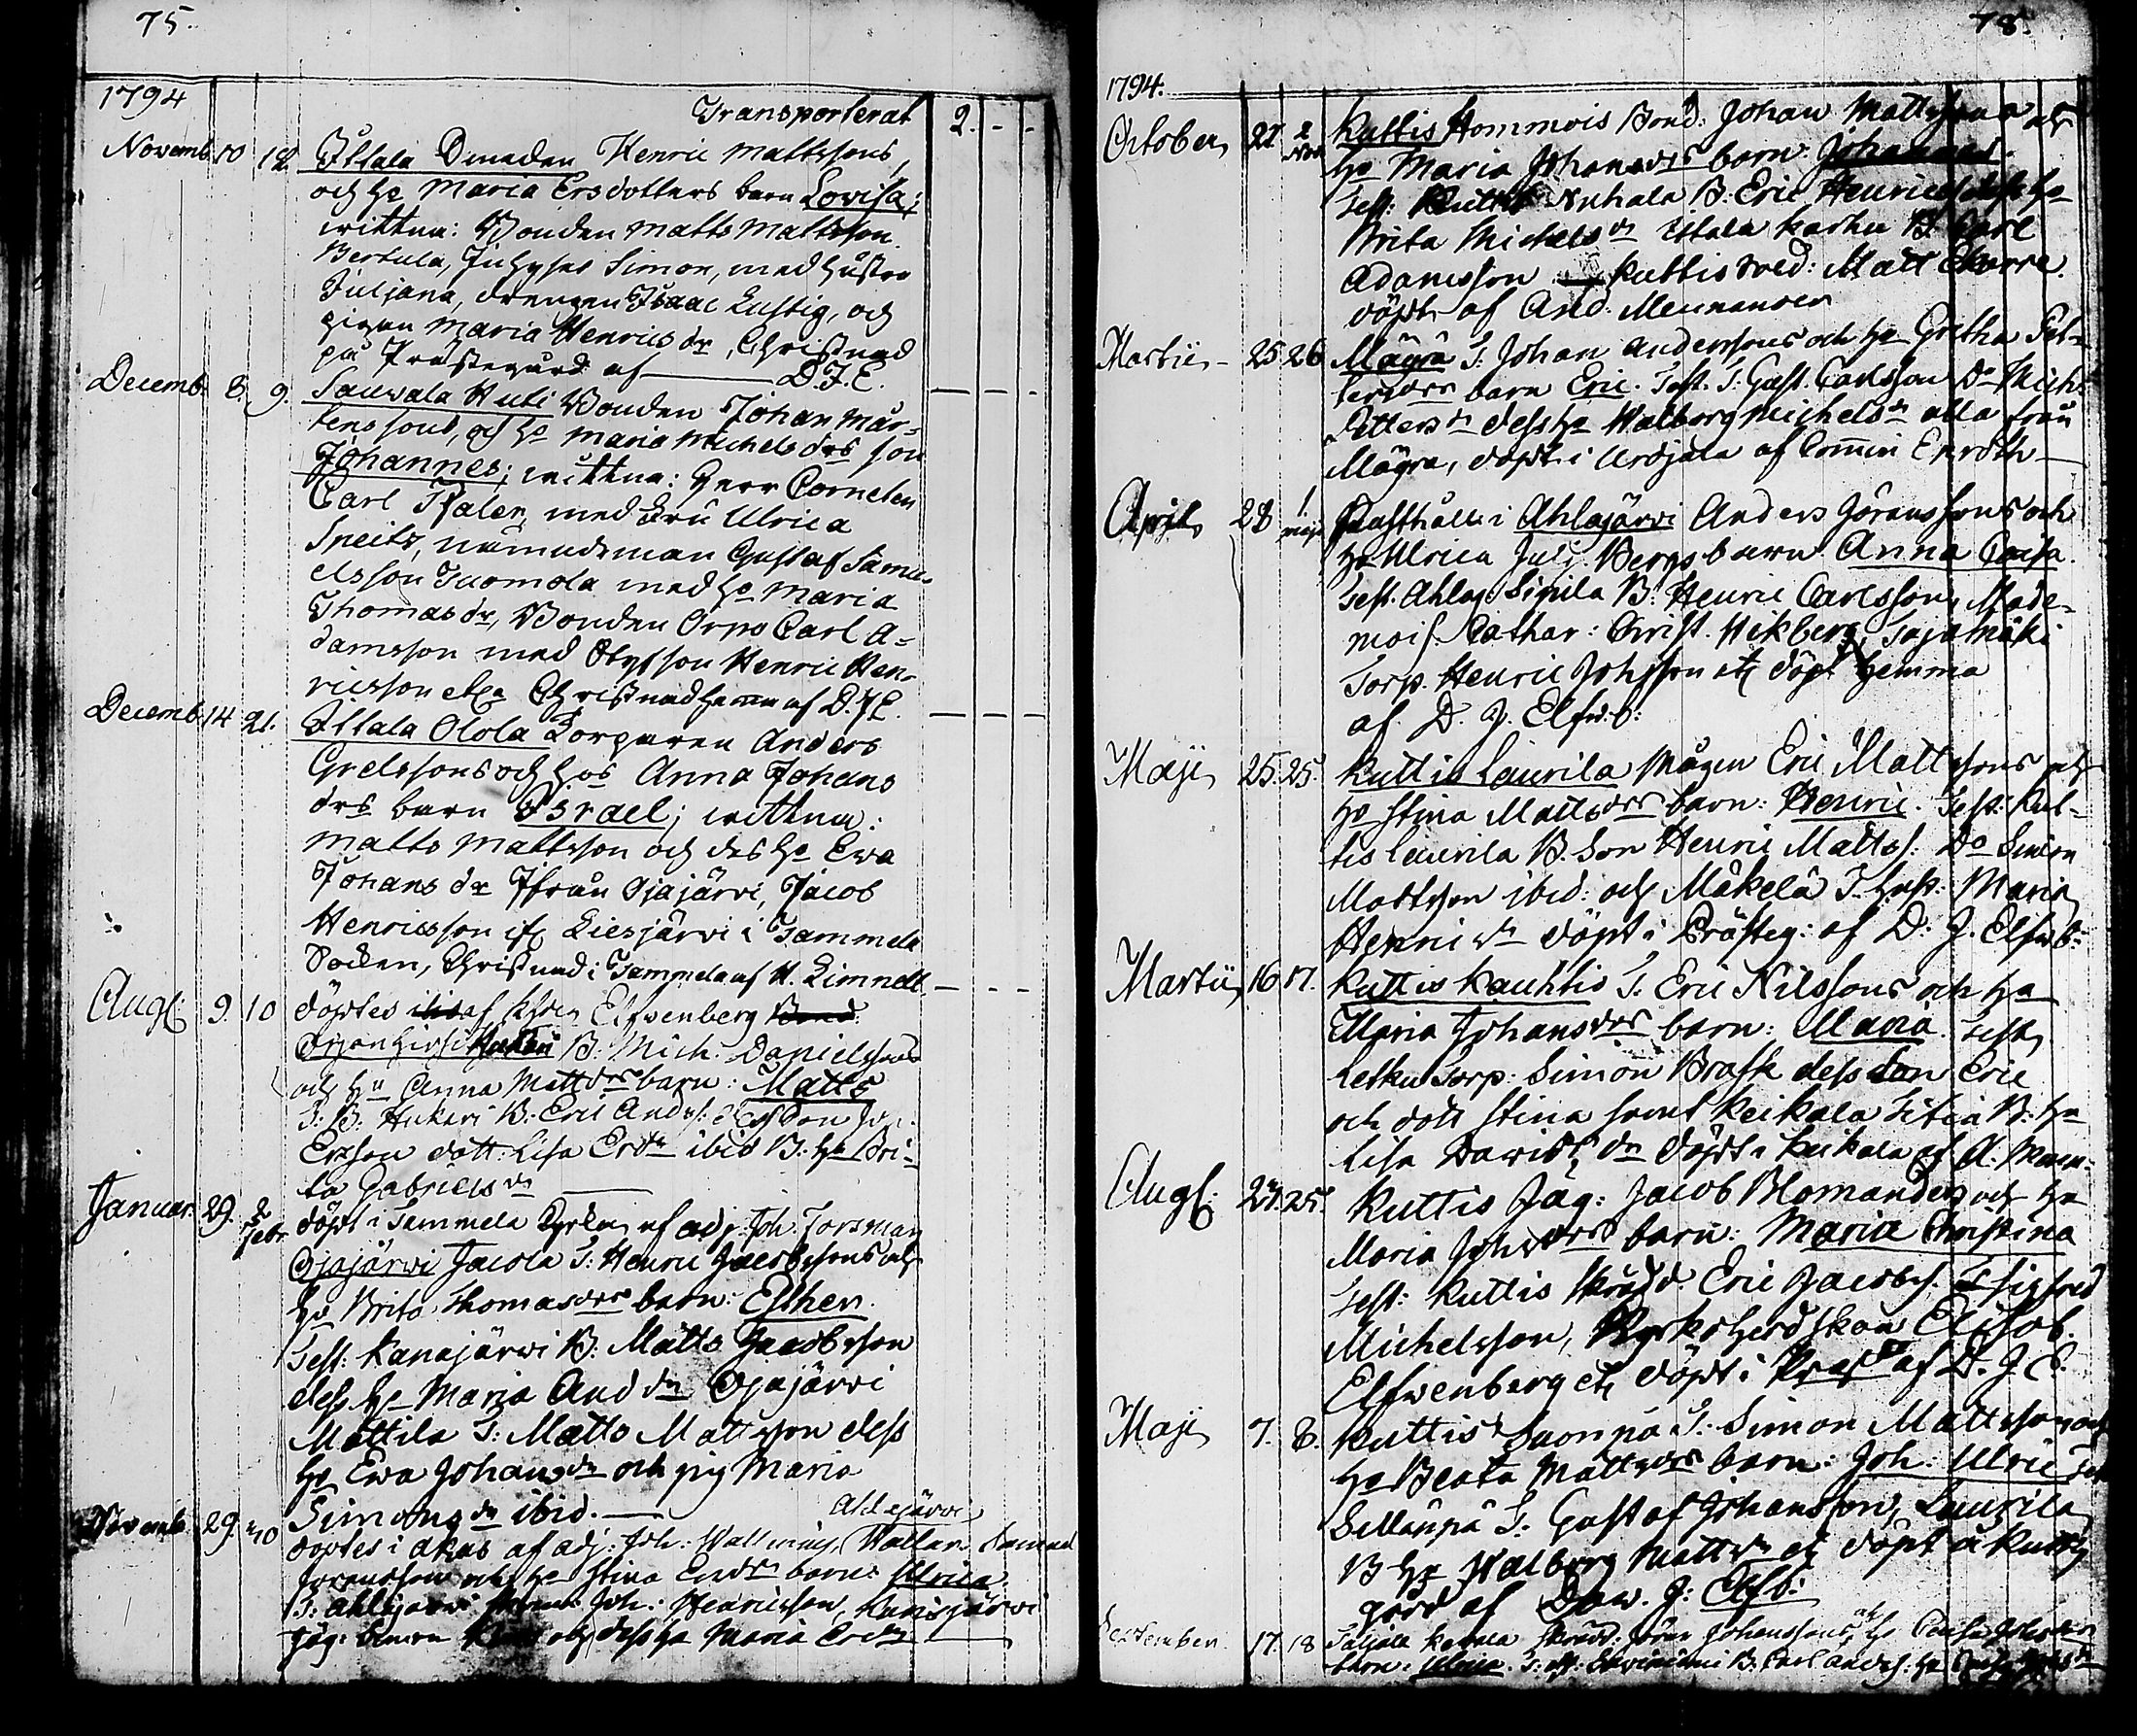 75.
1794
Transporterat 2. - -
Novemb. 10 12. Ittala Drengen Henric Mattssons,
och H:o Maria Ersdotters barn Lovisa;
wittnen: Bonden Matts Mattsson
Bertula, Inhyses Simon, med hustro
Juljana, drengen Isaac Lustig, och
pigan Maria Henricsdr, Christnad
på Prästegård af ——— D.J.E.
Decemb. 8. 9. Sauvala Huti Bonden Johan Mår-
tenssons, och H:o Maria Michelsdrs son
Johannes; wittnen: Herr Corneten
Carl Thalen, med Fru Ulrica
Sneitz, nämndeman Gustaf Samu-
elsson Tuomola med H:o Maria
Thomasdr, Bonden Orpo Carl A-
damsson med Styfson Henric Hen-
ricsson etca Christnad hemma af D.J.E.
Decemb. 14 21. Ittala Olola Torparen Anders
Grelssons och H:os Anna Johans
drs barn Israel; wittnen:
Matts Mattsson och des H:o Ewa
Johansdr ifrån Ojajärvi, Jacob
Henricsson if. Liesjärvi i Tammela
Socken, Christnad i Tammela af H. Limnell
Aug. 9. 10 döptes af Elfwenberg
B. Mich. Danielssons
och H:u Anna Mattdrs barn: Matts
T: B: Hukari B. Eric Anders:
Ersson dott: Lisa Ersdr ibid B: H:o Bri-
ta Gabrielsdr
Januar. 29. 2 Febr. döpt i Tammela af adj. Joh. Forsman
Ojajärwi Jacola T: Henric Jacobssons och
H:o Brita Thomasdrs barn: Esther.
Test: Kanajärwi B: Matts Jacobsson
dess H:o Maria Anddr Ojajärwi
Mattila T: Matts Mattsson dess
H:o Ewa Johansdr och pig Maria
Simonsdr ibid. —
Ahlajärwi
Novemb. 29. 30 döptes i Akas af adj: Joh: Wallening, Samuel
Jöransson och H:o Stina Ersdr barn: Ulrica.
T: Ahlajärwi Joh: Henricsson, Kanisjärwi
Jäg: Simon och dess H:o Maria Ersdr
78.
1794.
October 21. 2 Nov. Kuttis Hommois Bond: Johan Mattssons och
H:o Maria Johansdrs barn: Johannes.
Test: Nuhala B: Eric Henricss dess H:o
Brita Michelsdr Ittala Karhu B: Carl
Adamsson Kuttis Sold: Matt Skorre.
döpt af And: Mennander
Martii - 25. 26 Mägrä T: Johan Anderssons och H:o Gretha Pet-
tersdrs barn Eric. Test. T: Gust. Carlsson D:o Mich:
Petters dess H:o Walborg Michelsdr alla från
Mägra, döpt i Urdjala af Comin Enroth —
April 28 1 maji Gästhåll: i Ahlajärvi Anders Jöranssons och
H:o Ulrica Julj: Bergs barn Anna Caisa
Test. Ahlaj. Sipila B: Henric Carlsson, Made-
mois. Cathar: Christ. Wikberg, Sajamäki
Torp. Henric Johsson etc döpt hemma
af D. J. Elfw.b:
Maji 25. 25. Kuttis Laurila Mågen Eric Mattssons och
H:o Stina Mattsdrs barn: Henric. Test: Kut-
tis Laurila B. Son Henric Matts: D:o Simon
Mattsson ibid: och Mäkelä T. Hust: Maria
Henricdr döpt i Prästeg: af D. J. Elfwb:
Martii 16 17. Kuttis Kauhtis T. Eric Nilssons och H:o
Maria Johansdrs barn: Maria. Test.
Letku Torp: Simon Brask dess Son Eric
och dott Stina samt Keikala Titia B: H:o
Lisa Davidsdr döpt i Keikala af A. Menn:
Aug. 24. 25. Kuttis Jäg: Jacob Blomander och H:o
Maria Johsdrs barn: Maria Christina
Test: Kuttis Skrädd. Eric Jacobs: Sigfred
Michelsson, Kyrkoherdskan Elisab.
Elfwenberg etc döpt i Präst: af D. J. E.
Maji 7. 8. Kuttis Suonpä T: Simon Mattsson och
H:o Beata Mattsdrs barn: Joh: Ulric Test
Sillanpä T: Gustaf Johansson, Laurila
B H:o Walborg Mattsdr etc döpt å Kuttis
gård af Daw. J: Elfb:
September 17. 18 Skrädd: Göran Johanssons och H:o Caisa Johsdrs
barn: Ulrica. T: